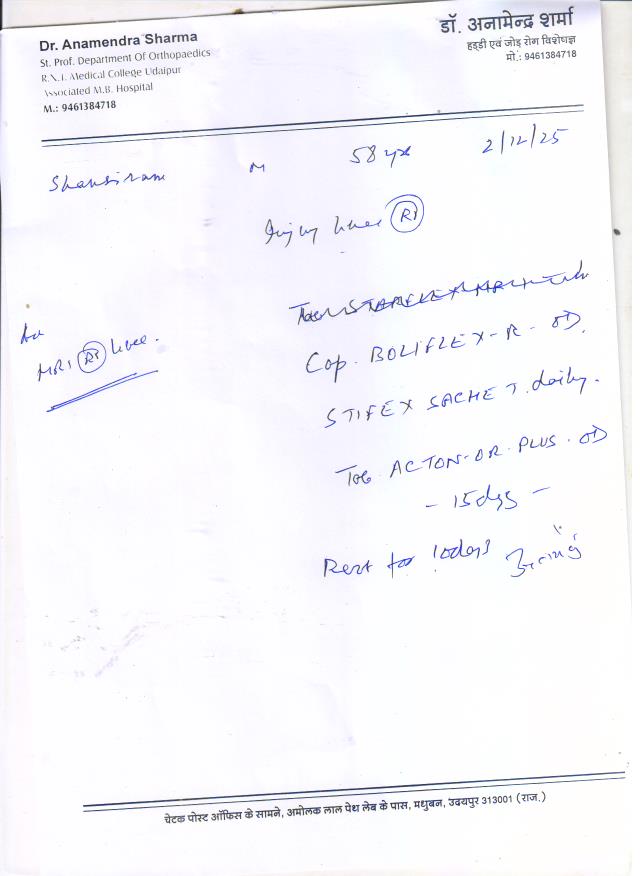 Dr. Anamendra Sharma
St. Prof. Department Of Orthopaedics
R.N.T. Medical College Udaipur
Associated M.B. Hospital
M.: 9461384718
डॉ. अनामेन्द्र शर्मा
हड्डी एवं जोड़ रोग विशेषज्ञ
मो.: 9461384718
M 58 yrs 2/12/25
Injury knee RT
MRI RT knee.
Cap. BOLIFLEX-R- OD.
STIFEX SACHET. daily.
Tab ACTON-OR-PLUS. OD
- 15 days -
Rest for 10 days
चेटक पोस्ट ऑफिस के सामने, अमोलक लाल पेथ लेब के पास, मधुबन, उदयपुर 313001 (राज.)